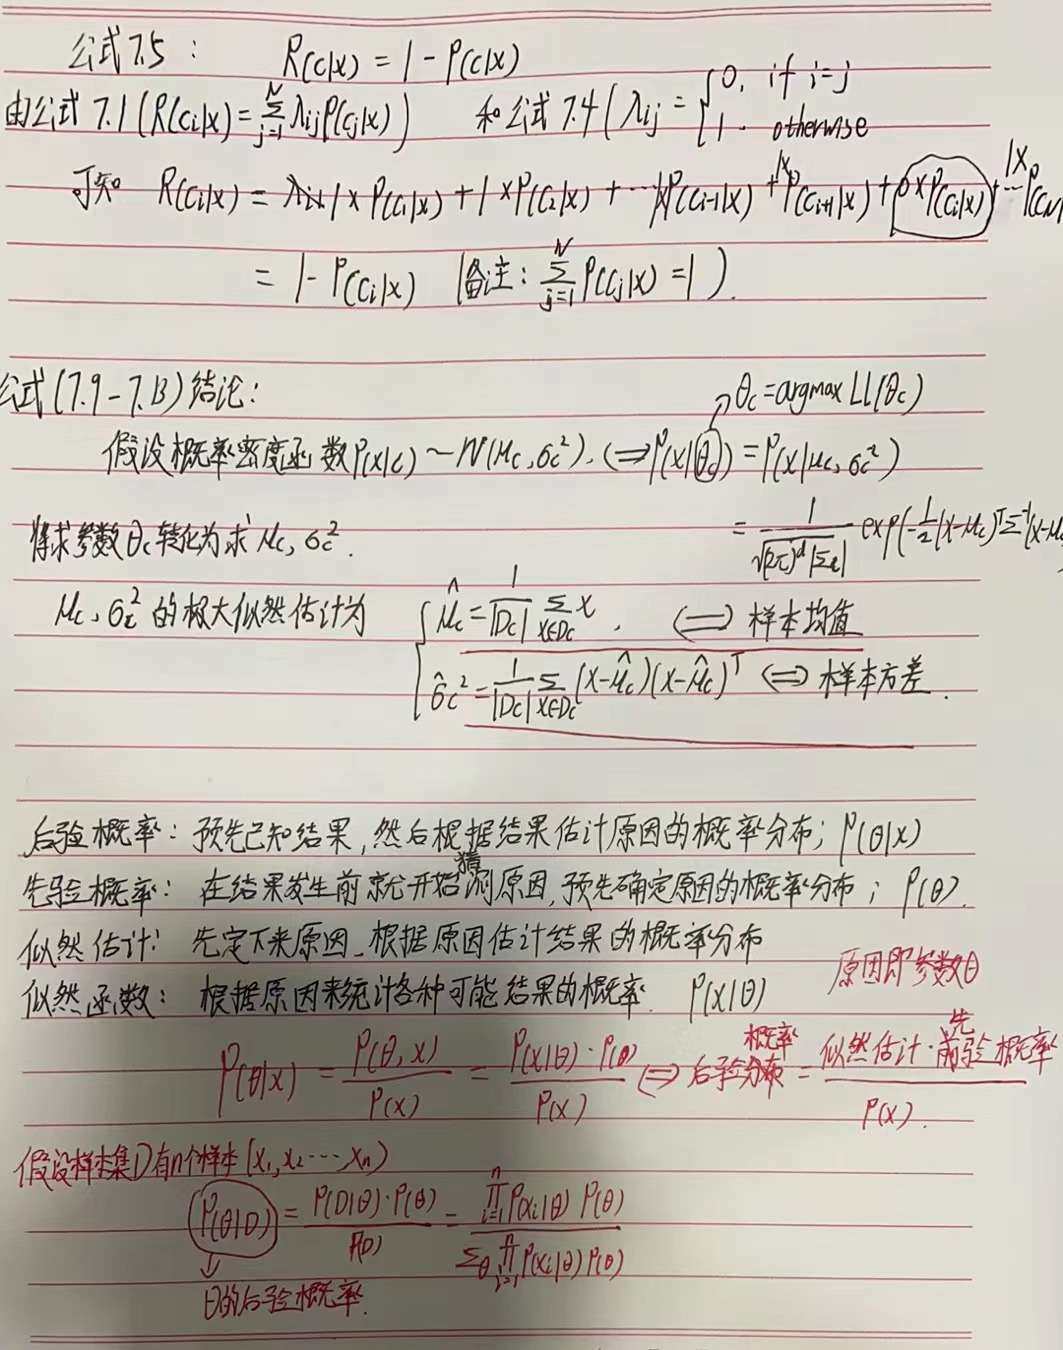 公式7.5： R(c|x) = 1 - P(c|x)
由公式 7.1 (R(ci|x) = Σ_{j=1}^{N} λij P(cj|x)) 和公式 7.4 (λij = { 0, if i=j
1. otherwise
可知 R(ci|x) = 1×P(c1|x) + 1×P(c2|x) + … 1×P(ci-1|x) + 1×P(ci+1|x) + 0×P(ci|x) + … 1×P(cN
= 1 - P(ci|x) (备注: Σ_{j=1}^{N} P(cj|x) = 1 ).
公式(7.9-7.13)结论: θc = argmax LL(θc)
假设概率密度函数P(x|c) ~ N(μc, σc²). (⟺ P(x|θc)) = P(x|μc, σc²)
将求参数θc转化为求 μc, σc². = 1/√((2π)^d |Σc|) exp(-1/2 (x-μc)^T Σ^{-1} (x-μc
μc、σc² 的极大似然估计为 { μ̂c = 1/|Dc| Σ_{x∈Dc} x , ⟺ 样本均值
σ̂c² = 1/|Dc| Σ_{x∈Dc} (x-μ̂c)(x-μ̂c)^T ⟺ 样本方差.
后验概率: 预先已知结果, 然后根据结果估计原因的概率分布; P(θ|x)
先验概率: 在结果发生前就开始猜测原因, 预先确定原因的概率分布; P(θ).
似然估计: 先定下来原因、根据原因估计结果的概率分布
原因即参数θ
似然函数: 根据原因来统计各种可能结果的概率. P(x|θ)
P(θ|x) = P(θ, x)/P(x) = P(x|θ)·P(θ)/P(x) ⟺ 后验概率 = 似然估计·先验概率/P(x).
假设样本集D有n个样本(x1, x2 …, xn)
P(θ|D) = P(D|θ)·P(θ)/P(D) = ∏_{i=1}^{n} P(xi|θ) P(θ)/Σ_θ ∏_{i=1}^{n} P(xi|θ) P(θ)
θ的后验概率.